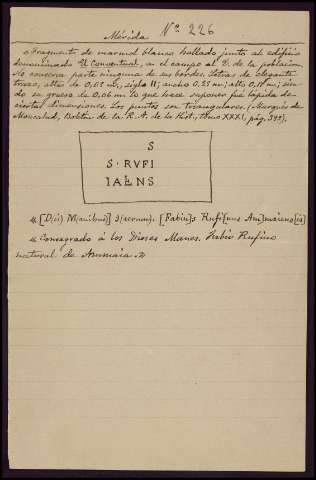 Mérida Nº 226
«Fragmento de marmol blanco hallado junto al edificio
denominado El Conventual, en el campo al E. de la poblacion.
No conserva parte ninguna de sus bordes. Letras de elegante
trazo, altas de 0,05 m., siglo II; ancho 0,25 m; alto 0,18 m; sien-
do su grueso de 0,06 m. lo que hace suponer fué lapida de
ciertas dimensiones. Los puntos son triangulares. (Marqués de
Monsalud, Boletin de la R. A. de la Hist., tomo XXXI, pág.
S
S · RVFI
IAENS
«[D(iis) M(anibus)] s(acrum). [Fabiu]s Rufi[nus
«Consagrado á los Dioses Manes. Fabio Rufino
natural de